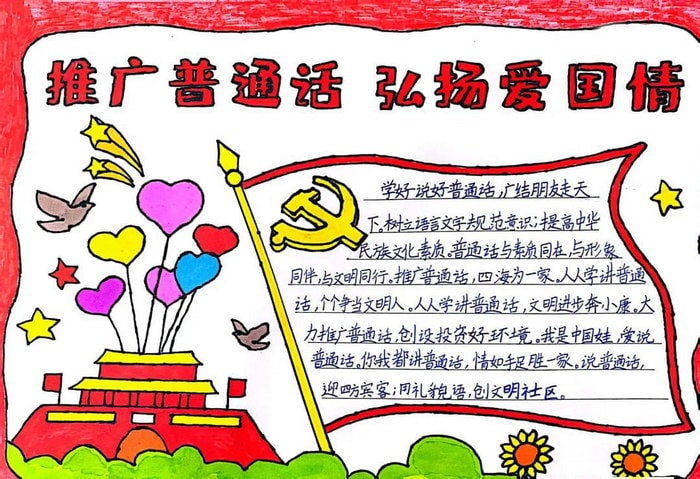 推广普通话 弘扬爱国情
学好说好普通话,广结朋友走天
下。树立语言文字规范意识;提高中华
民族文化素质。普通话与素质同在,与形象
同伴,与文明同行。推广普通话,四海为一家。人人学讲普通
话,个个争当文明人。人人学讲普通话,文明进步奔小康。大
力推广普通话,创设投资好环境。我是中国娃,爱说
普通话。你我都讲普通话,情如手足胜一家。说普通话,
迎四方宾客;用礼貌语,创文明社区。